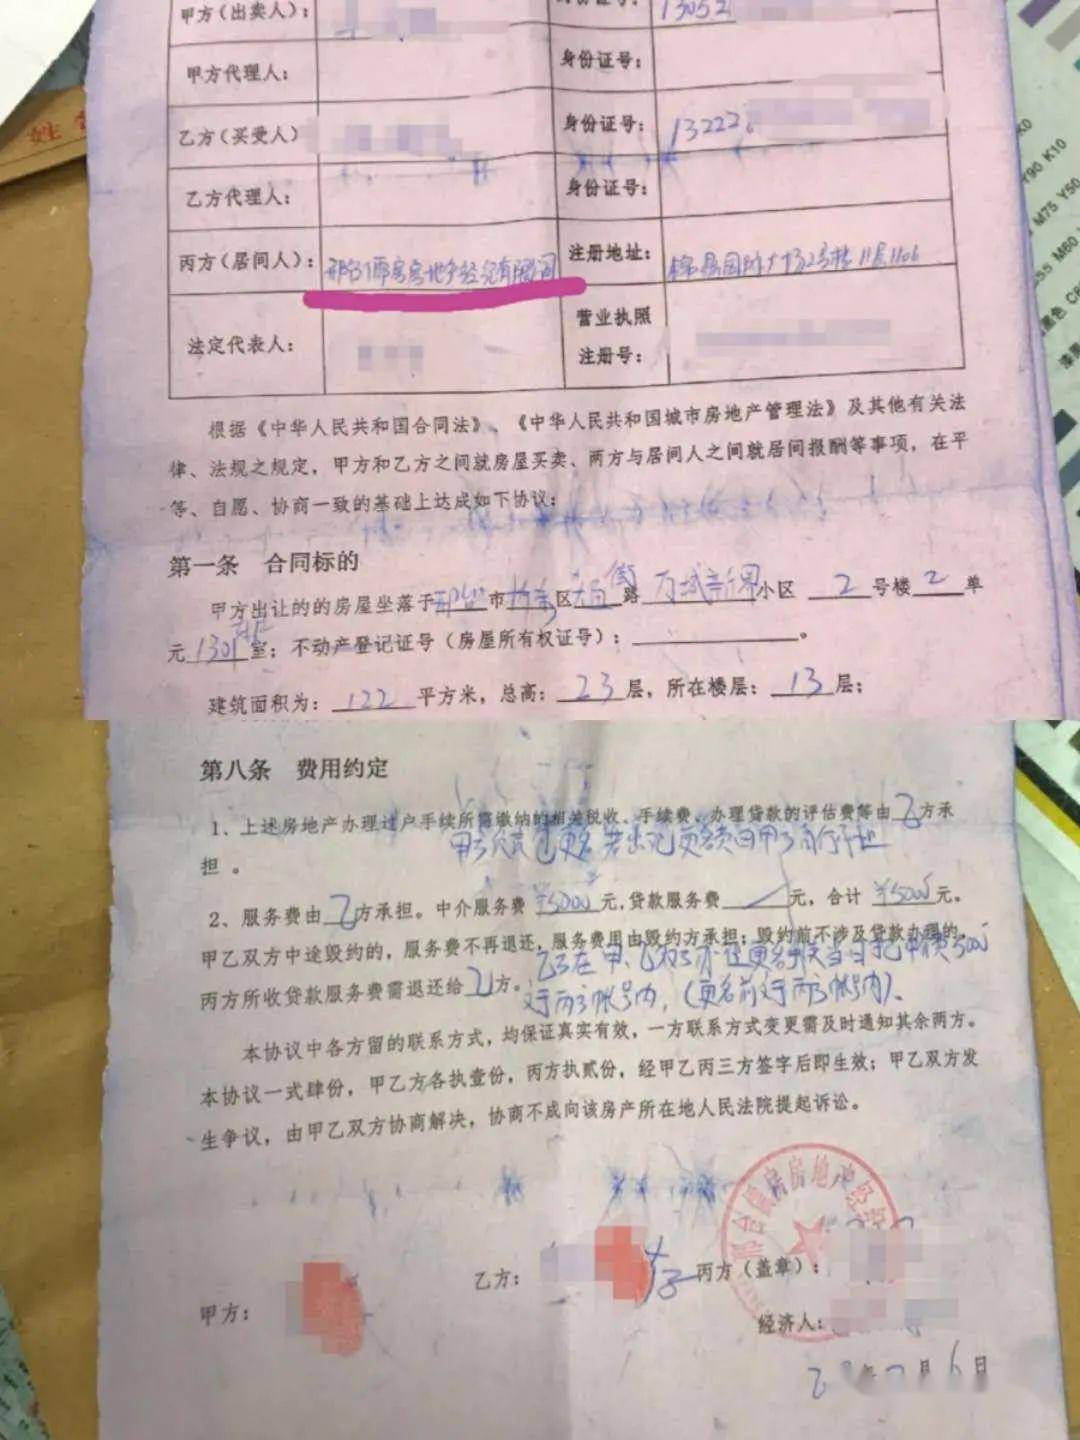 甲方（出卖人）：
身份证号：
13052
甲方代理人：
身份证号：
乙方（买受人）
身份证号：
13222
乙方代理人：
身份证号：
丙方（居间人）：
房地产经纪有限公司
注册地址：
国际大厦2号楼11层1106
法定代表人：
营业执照
注册号：
根据《中华人民共和国合同法》、《中华人民共和国城市房地产管理法》及其他有关法
律、法规之规定，甲方和乙方之间就房屋买卖、两方与居间人之间就居间报酬等事项，在平
等、自愿、协商一致的基础上达成如下协议：
第一条 合同标的
甲方出让的的房屋坐落于邢台市桥东区路万城新界小区 2 号楼 2 单
元 1301 室；不动产登记证号（房屋所有权证号）：。
建筑面积为：122 平方米，总高：23 层，所在楼层：13 层；
第八条 费用约定
1、上述房地产办理过户手续所需缴纳的相关税收、手续费、办理贷款的评估费等由乙方承
担 。
2、服务费由乙方承担。中介服务费 ¥5000 元，贷款服务费 元，合计 ¥5000 元。
甲乙双方中途毁约的，服务费不再退还，服务费用由毁约方承担；毁约前不涉及贷款办理的，
丙方所收贷款服务费需退还给乙方。
乙方在甲、乙双方办理更名手续当日把中介费5000
付丙方帐号内，（更名前付丙方帐号内）。
本协议中各方留的联系方式，均保证真实有效，一方联系方式变更需及时通知其余两方。
本协议一式肆份，甲乙方各执壹份，丙方执贰份，经甲乙丙三方签字后即生效；甲乙双方发
生争议，由甲乙双方协商解决，协商不成向该房产所在地人民法院提起诉讼。
甲方：
乙方：
丙方（盖章）：
房房地产经
经济人：
月6日
姓
K0
Y90 K10
M75 Y50
M60